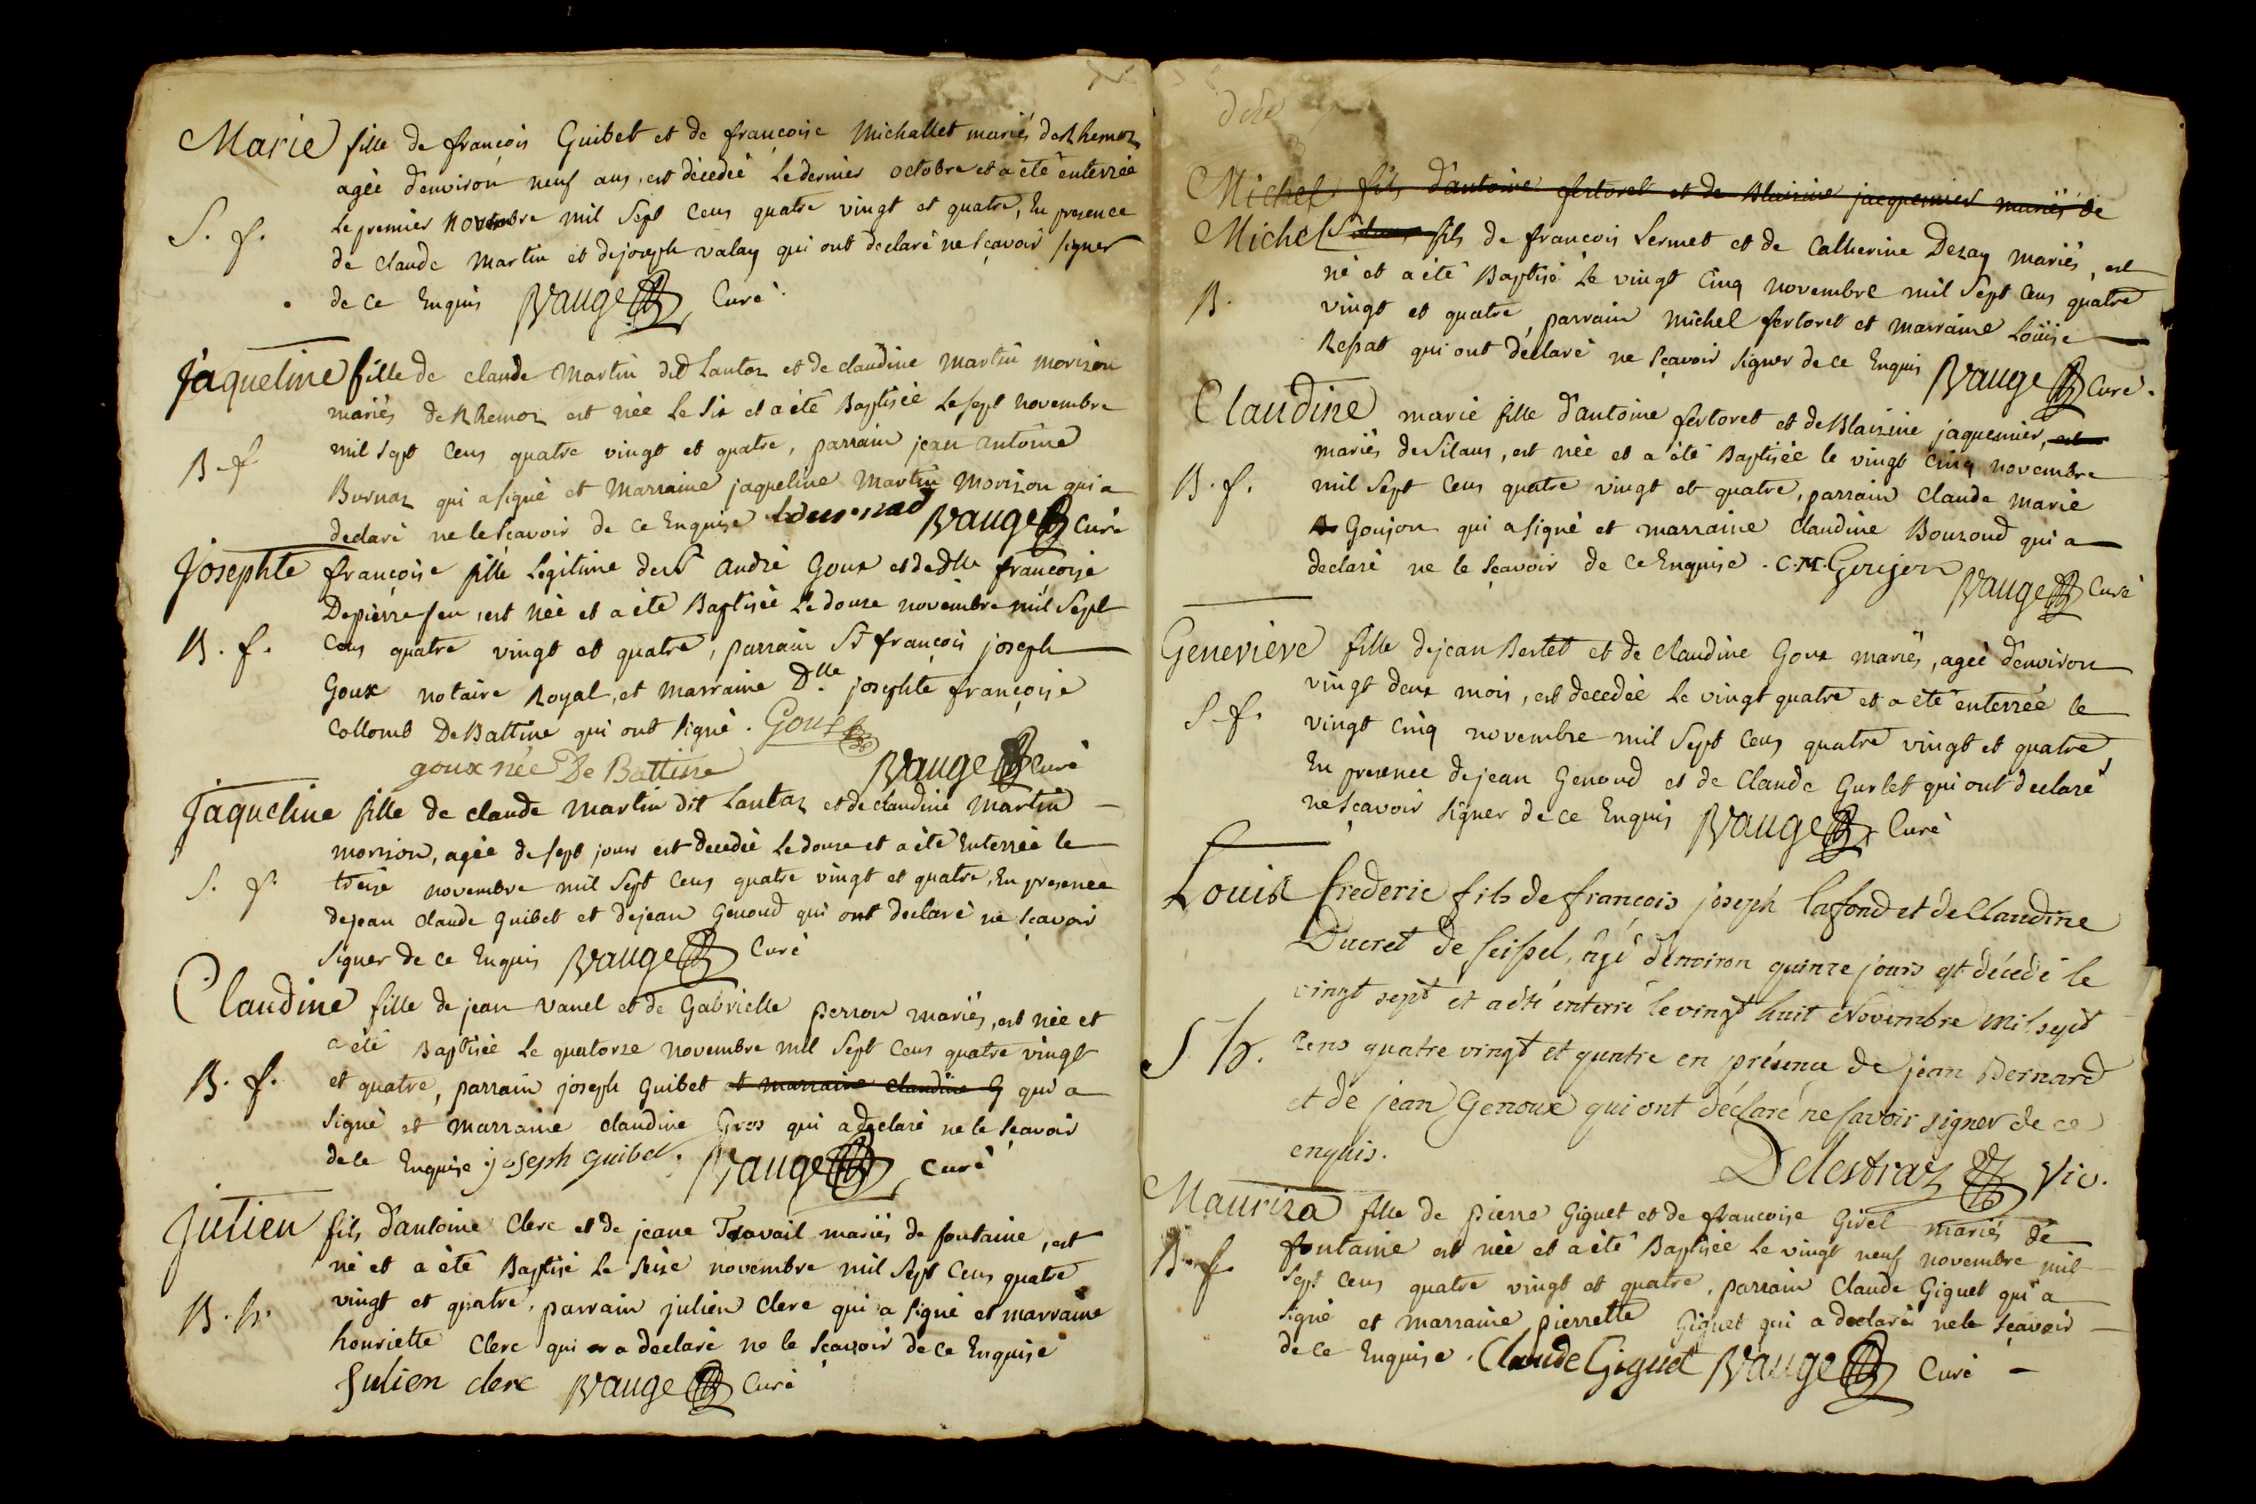 Marie fille de françois Guibet et de françoise Michallet mariés de Rhemoz
agée d'environ neuf ans, est décedée Le dernier octobre et a eté enterrée
S. f. Le premier novembre mil Sept Cens quatre vingt et quatre, En presence
de claude Martin et de joseph valay qui ont declaré ne sçavoir signer
de ce Enquis Vauge Curé.
Jaqueline fille de claude Martin dit Lantaz et de claudine martin morizon
mariés de Rhemoz est née Le Six et a eté Baptisée Le sept novembre
B. f. mil sept Cens quatre vingt et quatre, parrain jean antoine
Burnaz qui a signé et Marraine jaqueline Martin Morizon qui a
declaré ne le sçavoir de ce Enquise Vauge Curé
Josephte françoise fille Legitime de Sr andré Goux et de dlle françoise
Depierre feu, est née et a eté Baptisée Le douze novembre mil Sept
B. f. Cens quatre vingt et quatre, parrain Sr françois joseph
Goux notaire Royal, et marraine Dlle josephte françoise
Collomb De Battine qui ont signé. Goux
goux née De Battine Vauge Curé
Jaqueline fille de claude martin dit Lantaz et de claudine martin
morizon, agée de sept jours est decedée Le douze et a eté Enterrée le
S. f. treize novembre mil Sept Cens quatre vingt et quatre, En presence
de jean claude guibet et de jean Genoud qui ont declaré ne sçavoir
signer de ce Enquis Vauge Curé
Claudine fille de jean vanel et de Gabrielle perron mariés, est née et
a été Baptisée Le quatorze novembre mil Sept Cens quatre vingt
B. f. et quatre, parrain joseph Guibet et marraine claudine G qui a
signé et marraine claudine Gros qui a declaré ne le sçavoir
de ce Enquise joseph guibet. Vauge Curé
Julien fils d'antoine Clerc et de jeane Travail mariés de fontaine, est
né et a été Baptisé Le seize novembre mil Sept Cens quatre
B. h. vingt et quatre, parrain julien Clerc qui a signé et marraine
henriette Clerc qui a declaré ne le sçavoir de ce Enquise
Julien clerc Vauge Curé
Michel fils d'antoine fertoret et de Blaizine jacquemier mariés de
Michel fils de francois Sermet et de Catherine Dezay mariés, est
né et a été Baptisé Le vingt Cinq novembre mil Sept Cens quatre
B. vingt et quatre, parrain michel fertoret et marraine Loüise
Repat qui ont declaré ne sçavoir signer de ce Enquis Vauge Curé.
Claudine marie fille d'antoine fertoret et de Blaizine jaquemier, est
mariés de Silans, est née et a été Baptisée le vingt cinq novembre
B. f. mil Sept Cens quatre vingt et quatre, parrain Claude marie
Goujon qui a signé et marraine Claudine Bouzoud qui a
declaré ne le sçavoir de ce Enquise. C. M. Goujon Vauge Curé
Genevieve fille de jean Bertet et de claudine Goux mariés, agée d'environ
vingt deux mois, est decedée Le vingt quatre et a eté enterrée le
S. f. vingt cinq novembre mil Sept Cens quatre vingt et quatre
En presence de jean Genoud et de Claude Gurlet qui ont declaré
ne sçavoir signer de ce Enquis Vauge Curé
Louis frederic fils de françois joseph Lafond et de Claudine
Ducret de seissel, âgé d'environ quinze jours est décédé le
vingt sept et a été enterré le vingt huit Novembre mil sept
S. h. cens quatre vingt et quatre en présence de jean Bernard
et de jean Genoux qui ont déclaré ne savoir signer de ce
enquis.
Delestraz Vic.
Mauriza fille de pierre Giguet et de francoise Givel mariés de
B. f. fontaine est née et a été Baptisée Le vingt neuf novembre mil
Sept Cens quatre vingt et quatre, parrain Claude Giguet qui a
signé et marraine pierrette Giguet qui a declaré ne le sçavoir
de ce Enquise. Claude Giguet Vauge Curé